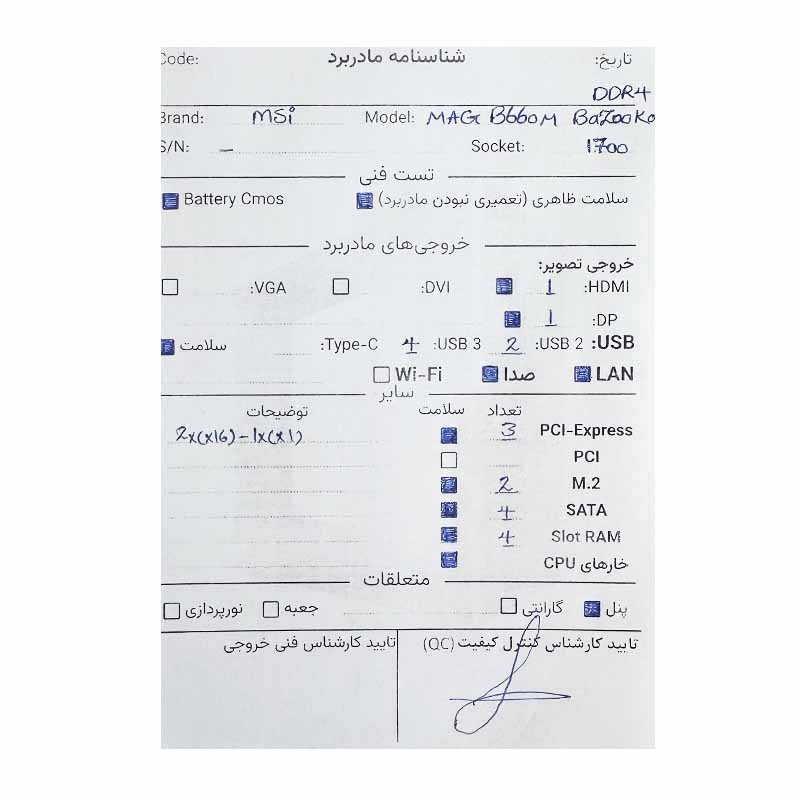 تاریخ: شناسنامه مادربرد Code:
DDR4
Brand: MSi Model: MAG B660M BaZooKa
S/N: – Socket: 1700
تست فنی
سلامت ظاهری (تعمیری نبودن مادربرد) Battery Cmos
خروجی‌های مادربرد
خروجی تصویر:
HDMI: 1 DVI: VGA:
DP: 1
USB: USB 2: 2 USB 3: 4 Type-C: سلامت
LAN صدا Wi-Fi
سایر
تعداد سلامت توضیحات
PCI-Express 3 2x(x16) – 1x(x1)
PCI
M.2 2
SATA 4
Slot RAM 4
خارهای CPU
متعلقات
پنل گارانتی جعبه نورپردازی
تایید کارشناس کنترل کیفیت (QC) تایید کارشناس فنی خروجی